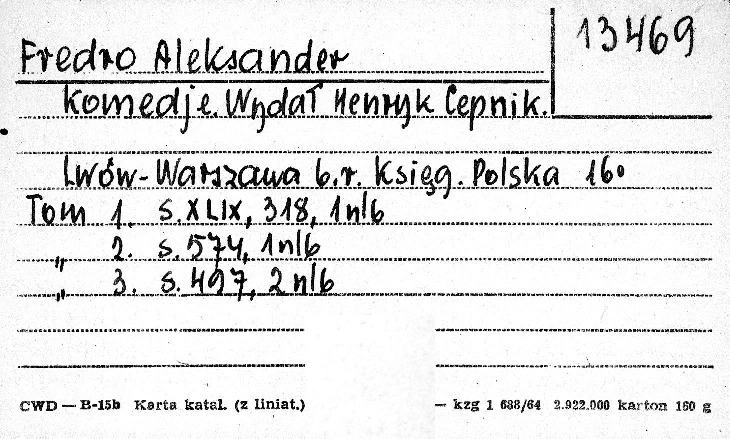 13469
Fredro Aleksander
Komedje. Wydał Henryk Cepnik.
Lwów-Warszawa b.r. Księg. Polska 16°
Tom 1. s. XLIX, 318, 1 nlb
„ 2. s. 574, 1 nlb
„ 3. s. 497, 2 nlb
CWD — B-15b Karta katal. (z liniat.) — kzg 1 688/64 2.922.000 karton 160 g